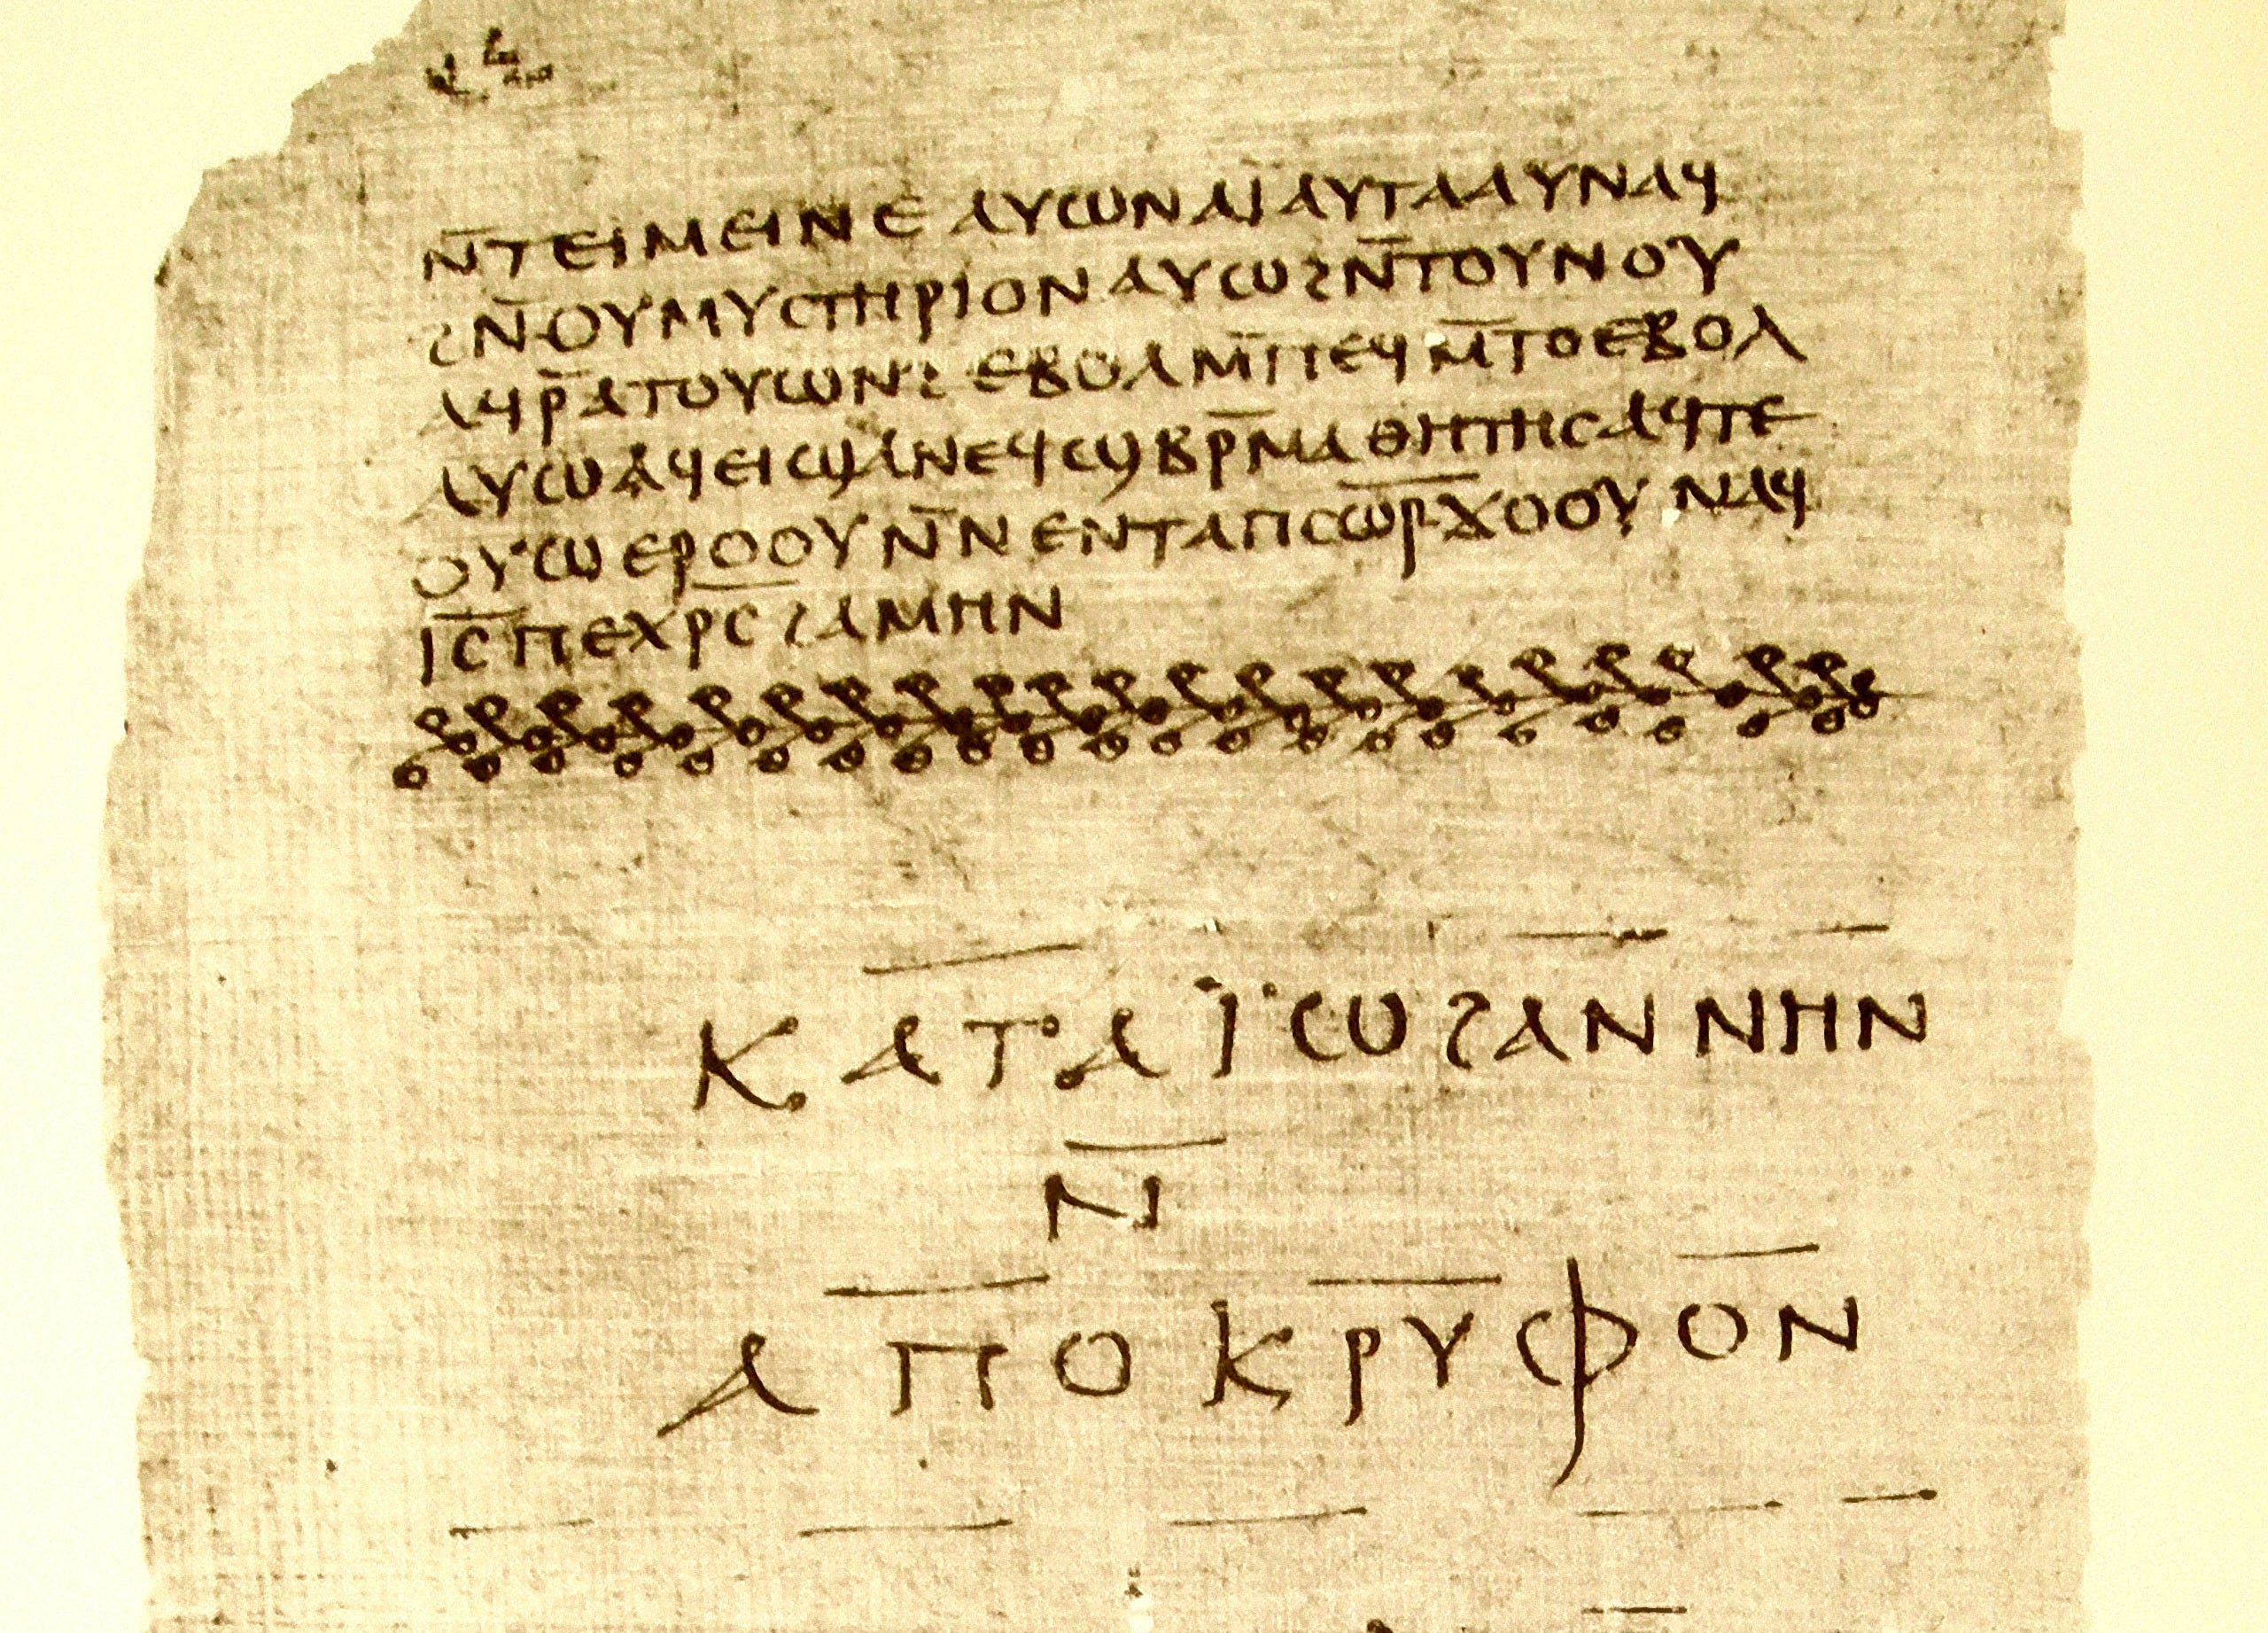 ⲛ̅ⲧⲉⲓⲙⲉⲓⲛⲉ ⲁⲩⲱ ⲛⲁⲓ̈ ⲁⲩⲧⲁⲁⲩ ⲛⲁϥ
ϩⲛ̅ ⲟⲩⲙⲩⲥⲧⲏⲣⲓⲟⲛ ⲁⲩⲱ ϩⲛ̅ ⲧⲟⲩⲛⲟⲩ
ⲁϥⲣ̅ ⲁⲧⲟⲩⲱⲛϩ ⲉⲃⲟⲗ ⲙ̅ⲡⲉϥⲙ̅ⲧⲟ ⲉⲃⲟⲗ
ⲁⲩⲱ ⲁϥⲉⲓ ϣⲁ ⲛⲉϥϣⲃⲣ̅ⲙⲁⲑⲏⲧⲏⲥ ⲁϥⲧⲉ
ⲟⲩⲱ ⲉⲣⲟⲟⲩ ⲛ̅ⲛⲉⲛⲧⲁ ⲡⲥⲱ̅ⲣ̅ ϫⲟⲟⲩ ⲛⲁϥ
ⲓ̅ⲥ̅ ⲡⲉⲭⲣ̅ⲥ̅ ϩⲁⲙⲏⲛ
ⲕⲁⲧⲁ ⲓ̈ⲱϩⲁⲛⲛⲏⲛ
ⲛ̅
ⲁⲡⲟⲕⲣⲩⲫⲟⲛ